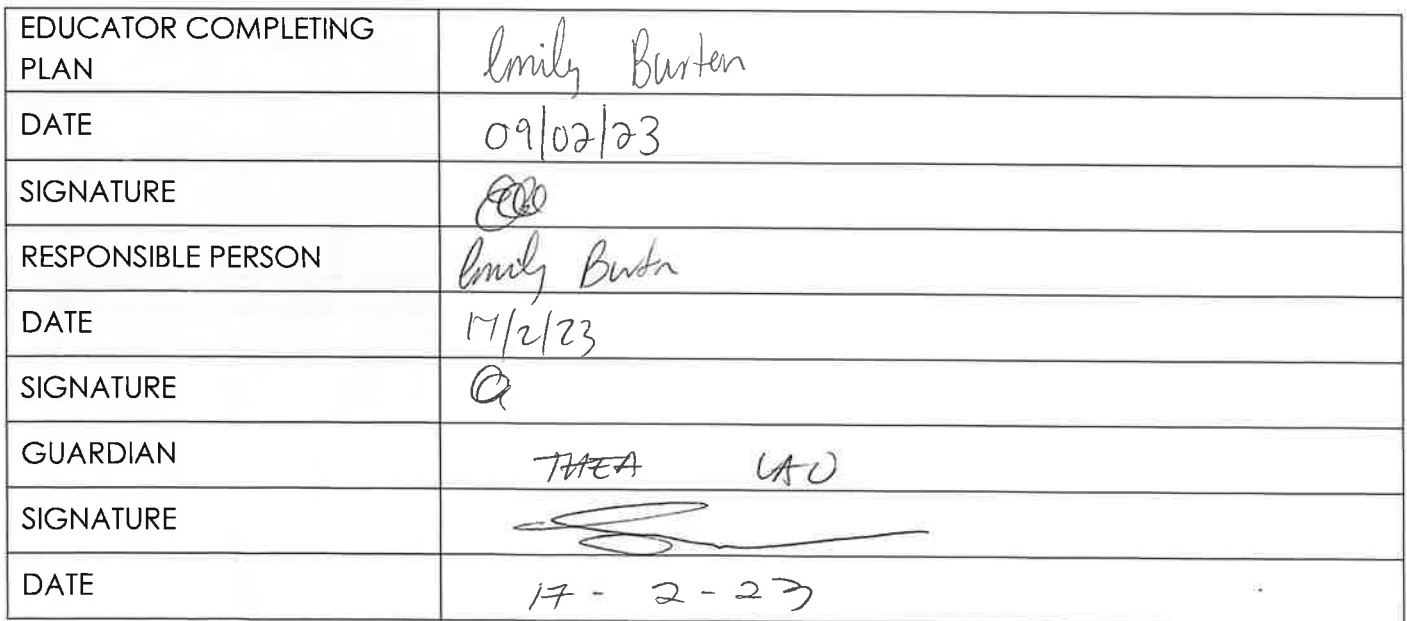 EDUCATOR COMPLETING
PLAN
Emily Burten
DATE
09/02/23
SIGNATURE
RESPONSIBLE PERSON
Emily Burtn
DATE
17/2/23
SIGNATURE
GUARDIAN
THEA LAO
SIGNATURE
DATE
17 - 2 - 23